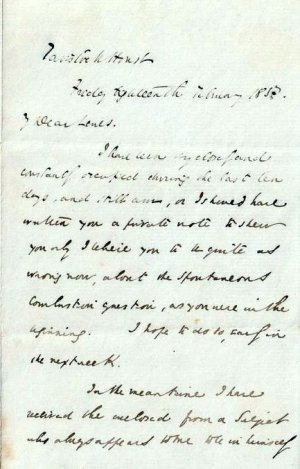 Tavistock House
Friday Eighteenth February 1853.
My Dear Lewes.
I have been so closely and
constantly occupied during the last ten
days, and still am, or I should have
written you a private note to shew
you why I believe you to be quite as
wrong now, about the Spontaneous
Combustion question, as you were in the
beginning. I hope to do so, early in
the next week.
In the meantime I have
received the enclosed from a
who always appears to me to be in himself